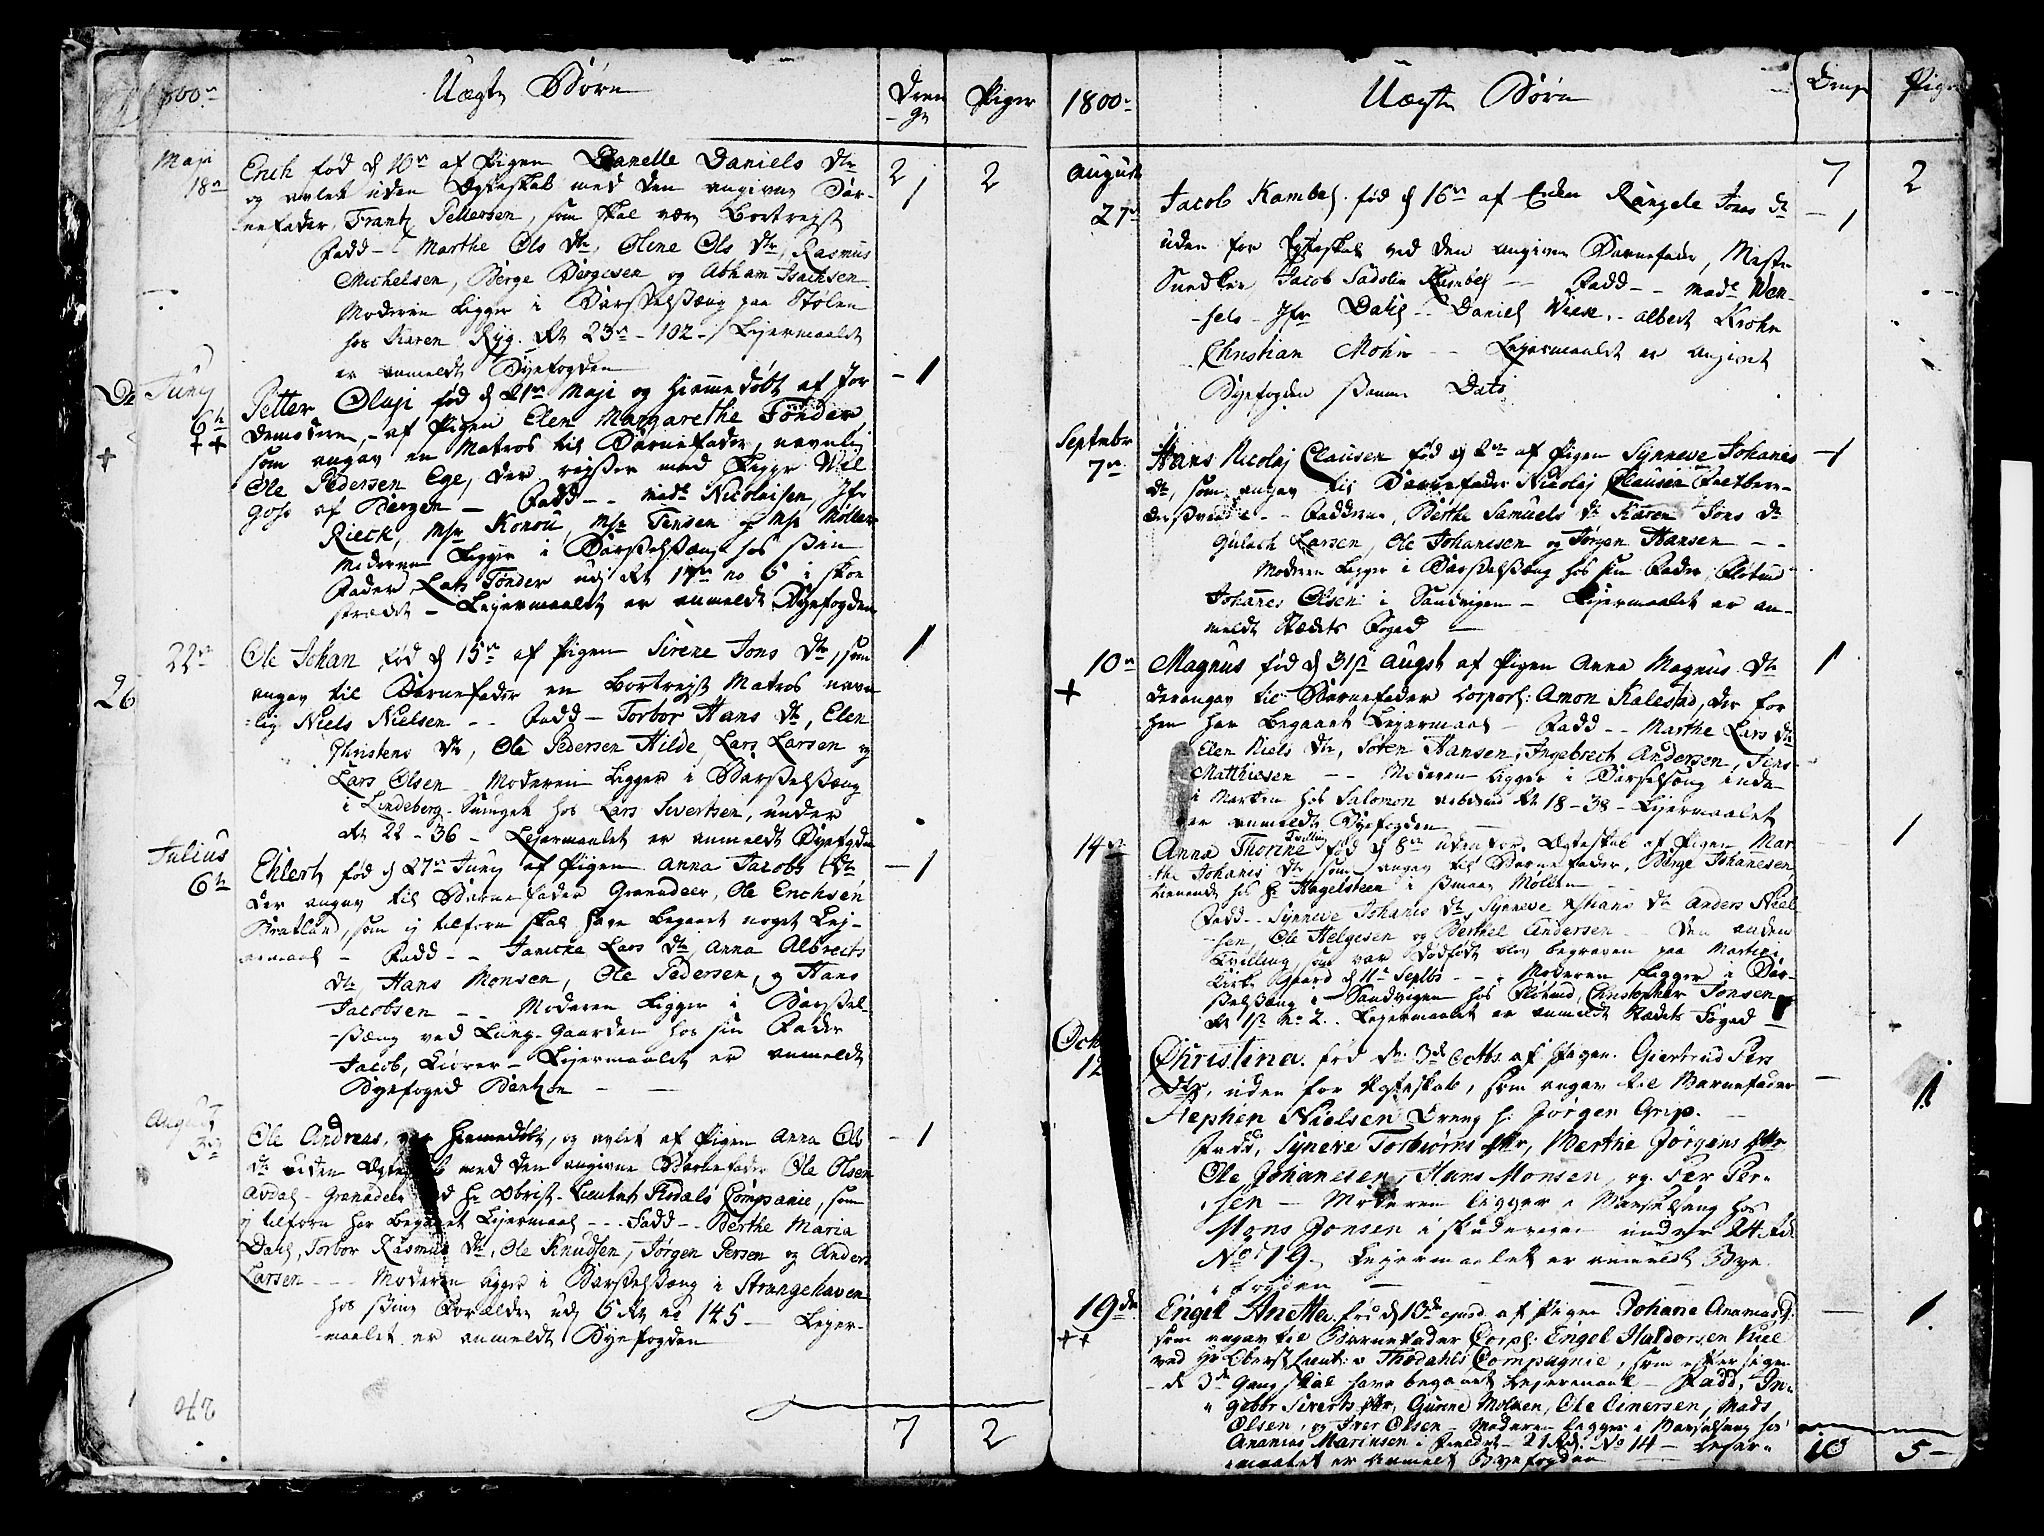 1800
Uægte Børn
Dren
ge
Piger
Maji
18de
2
2
Erich fød d 10de af Pigen Danelle Daniels Dtr
og avlet uden Ægteskab med den angivne Bar-
nefader Frantz Pettersen, som skal være bortreyst
1
Fadd - Marthe Ols Dtr, Oline Ols Dtr, Rasmus
Michelsen, Børge Børgesen og Abham Isachsen
Moderen ligger i Barselsæng paa Stølen
hos Karen Ryg. Rt 23de - 102 - Lejermaalet
er anmeldt Byefogden
Juny
6te
++
Petter Oluji fød d 21de Maji og hiemmedøbt af Jor
demoderen, - af Pigen Elen Margarethe Tønder
- 1
som angav en Matros til Barnefader, navnlig
Ole Pedersen Ege, der
af Bergen - Fadd - - Mad Nicolaisen, Jfr
Rieck, Msr Konou, Msr Jensen og Msr Møller
Moderen ligger i Barselsæng hos sin
Fader Lars Tønder udj Rt 17de no 5 i Skoe
strædet - Lejermaalet er anmeldt Byefogden
22de
Ole Johan fød d 15de af Pigen Sirene Jons Dtr, som
1
angav til Barnefader en bortreyst Matros navn
lig Niels Nielsen - - Fadd - Torbor Hans Dtr, Elen
26
Christens Dtr, Ole Pedersen Hilde, Lars Larsen og
Lars Olsen - Moderen ligger i Barselsæng
i Lindeberg-Smuget hos Lars Sivertsen, under
Rt 22 - 36 - Lejermaalet er anmeldt Byefogden
Julius
6te
Ehlert fød d 27de Juny af Pigen Anna Jacobs Dtr
- 1
der angav til Barnefader Granadeer, Ole Erichsen
Bratland, som ej tilforn skal have begaaet noget Lej-
ermaal - Fadd - - Janicke Lars Dtr, Anna Albrects
Dtr Hans Monsen, Ole Pedersen, og Hans
Jacobsen - - Moderen ligger i Barsel-
sæng ved Lung-Gaarden hos sin Fader
Jacob, Kiører - Lejermaalet er anmeldt
Byefoged Bentzon - -
August
3de
Ole Andreas, hiemedøbt, og avlet af Pigen Anna Ols
- 1
Dtr uden med den angivne Barnefader Ole Olsen
Avdal - Granadeer ved Hr Obrist-Lieutnt Tisdals Compagnie, som
ej tilforn har begaaet Lejermaal - - - Fadd - - Berthe Maria
Dahl, Torbor Rasmus Dtr, Ole Knudsen, Jørgen Persen og Anders
Larsen - - - Moderen ligger i Barselsæng i Strangehavnen
hos sine Forældre udj 5 Rt no 145 - Lejer-
maalet er anmeldt Byefogden
7
2
1800
Uægte Børn
Drenge
Piger
7
2
August
27de
Jacob Kambel fød d 16de af Enken Rangele Jons Dtr
- 1
uden for Ægteskab ved den angivne Barnefader, Mester
Snedker Jacob Sadolin Kambel - - Fadd - - Made Wen-
sels - Jfr Dahl - Daniel Wiese - Albert Krohn
Christian Mohn - - Lejermaalet er angivet
Byefogden samme Dato
Septembr
7de
Hans Nicolaj Clausen fød d 2de af Pigen Synneve Johanes
- 1
Dtr, som angav til Barnefader Nicolaj Clausen
Fadderne, Berthe Samuels Dtr Karen Jons Dtr
Gulach Larsen, Ole Johanesen og Jørgen Hansen - -
Moderen ligger i Barselsæng hos sin Fader
Johanes Olsen i Sandvigen - Lejermaalet er an-
meldt Stædets Foged -
10de
+
Magnus fød d 31te Augst af Pigen Anna Magnus Dtr
1
der angav til Barnefader Corporl: Amon Kalestad, der for
hen har begaaet Lejermaal - Fadd - - Marthe Lars Dtr
Elen Niels Dtr, Søren Hansen, Ingebrect Andersen, Jens
Matthiesen - - Moderen ligger i Barselsæng inde
i Marken hos Salomon Rt 18 - 38 - Lejermaalet
er anmeldt Byefogden
14de
Anna Thorine Tvilling fød d 8de uden for Ægteskab af Pigen Mar
1
the Johanes Dtr som angav til Barnefader, Børge Johanesen,
tienende hos Hr Hagelsteen i smaae Møllen
Fadd - Synneve Johanes Dtr, Synneve Dtr Anders Niel
sen, Ole Helgesen og Berthel Andersen - - Den anden
Tvilling, som var Dødfødt blev begraven paa Martini
Kirke Gaard d 11te Septbr - - Moderen ligger i Bar-
selsæng i Sandvigen hos Christopher Jonsen
Rt 1ste No 2 - Lejermaalet er anmeldt Stædets Foged
Octb
12
Christina fød d: 3de Octbr af Pigen Giertrud Pers
Dtr, uden for Ægteskab, som angav til Barnefader
-
1
Stephen Nielsen Dreng h: Jørgen Grip. -
Fadd, Syneve Torbiørns Dtr, Merthe Jørgens Dtr
Ole Johanesen, Hans Monsen, og Per Per-
sen - Moderen ligger i Barselsæng hos
Mons Jonsen i under 24 Rt
No 19 - Lejermaalet er anmeldt Bye
fogden
19de
++
Engel Anetta fød d 13de af Pigen Johane Ananias D:
-
1
som angav til Barnefader Corpl: Engel Haldorsen
ved Hr Oberst Lieut: v Thodahls Compagnie, som
de 3de Gang skal have begaaet Lejermaal - Fadd, In-
gebor Siverts Dtr, Gurine Molken, Ole Einersen, Mads
Olsen, og Iver Olsen - Moderen ligger i Barselsæng hos
Ananias Marinsen i - 21 Rt: No 14 - Lejer-
maalet er anmelt Byefogden
10
5 -